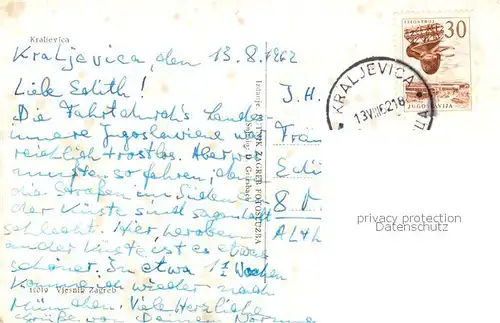 Kraljevica
Kraljevica, den 13.8.1962
Liebe Edith!
Die Fahrt durch's Landes-
innere Jugoslawiens war
reichlich trostlos. Aber wir
mussten so fahren, da
die Straßen im Süden
der Küste sind sagenhaft
schlecht. Hier, heroben
an der Küste ist es etwas
schöner. In etwa 1½ Wochen
komme ich wieder nach
München. Viele Herzliche
Grüße von Deinem Norman
Vjesnik Zagreb
Izdanje PUTNIK ZAGREB FOTOSLUŽBA
J.H.
Edi
8 M
JUGOSLAVIJA
30
KRALJEVICA
13VIII6218
privacy protection
Datenschutz